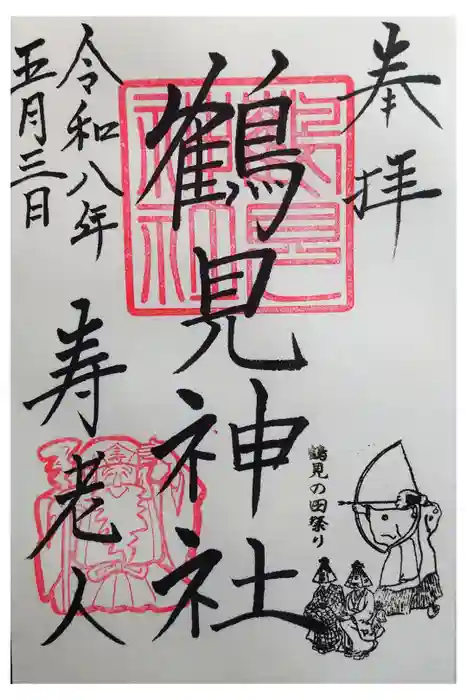 奉拝
鶴見神社
鶴見神社
鶴見の田祭り
令和八年
五月三日
寿老人